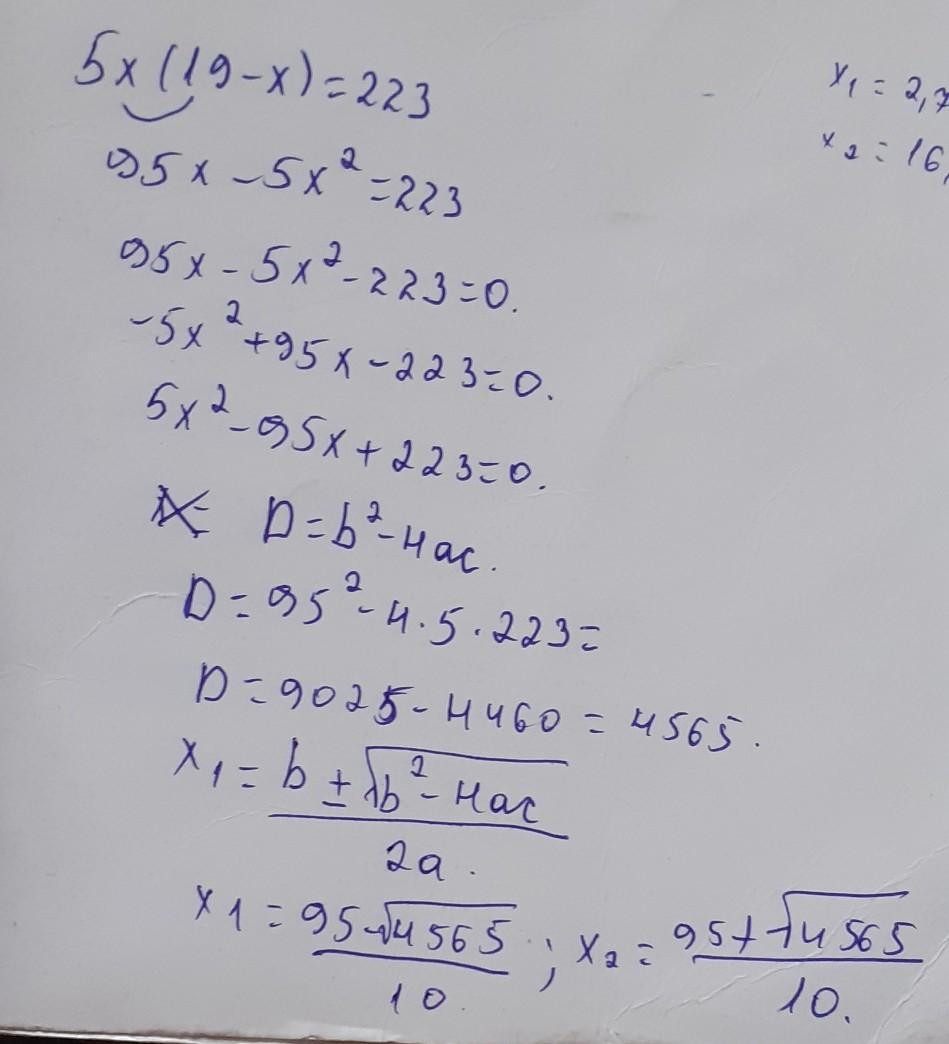 5x(19-x)=223
x₁=2,7
x₂=16,
95x-5x²=223
95x-5x²-223=0.
-5x²+95x-223=0.
5x²-95x+223=0.
D=b²-4ac.
D=95²-4·5·223=
D=9025-4460=4565.
x₁=b±√b²-4ac
2a.
x1=95-√4565 ; x₂=95+√4565
10. 10.